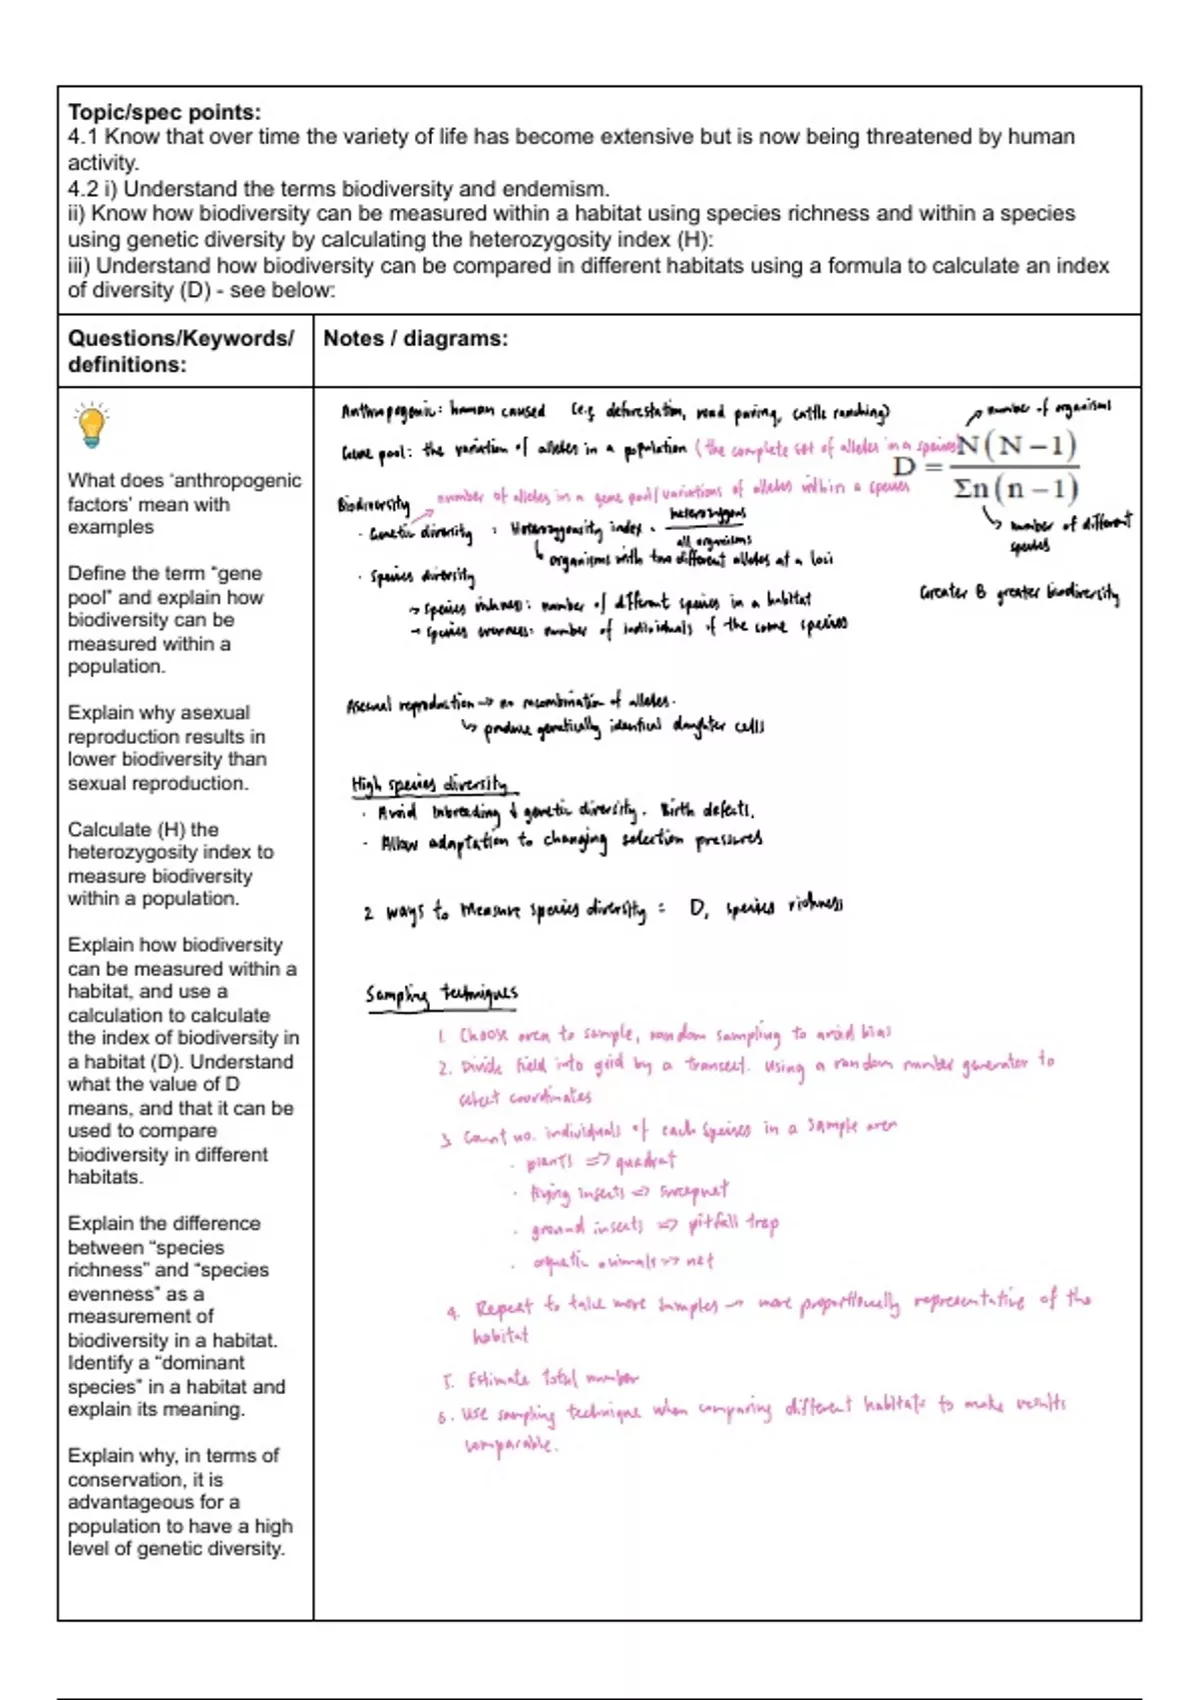 Topic/spec points:
4.1 Know that over time the variety of life has become extensive but is now being threatened by human
activity.
4.2 i) Understand the terms biodiversity and endemism.
ii) Know how biodiversity can be measured within a habitat using species richness and within a species
using genetic diversity by calculating the heterozygosity index (H):
iii) Understand how biodiversity can be compared in different habitats using a formula to calculate an index
of diversity (D) - see below:
Questions/Keywords/
definitions:
Notes / diagrams:
What does 'anthropogenic
factors' mean with
examples
Define the term "gene
pool" and explain how
biodiversity can be
measured within a
population.
Explain why asexual
reproduction results in
lower biodiversity than
sexual reproduction.
Calculate (H) the
heterozygosity index to
measure biodiversity
within a population.
Explain how biodiversity
can be measured within a
habitat, and use a
calculation to calculate
the index of biodiversity in
a habitat (D). Understand
what the value of D
means, and that it can be
used to compare
biodiversity in different
habitats.
Explain the difference
between "species
richness" and "species
evenness" as a
measurement of
biodiversity in a habitat.
Identify a "dominant
species" in a habitat and
explain its meaning.
Explain why, in terms of
conservation, it is
advantageous for a
population to have a high
level of genetic diversity.
Anthropogenic: human caused (e.g deforestation, road paving, cattle ranching)
Gene pool: the variation of alleles in a population (the complete set of alleles in a species)
number of organisms
D = N(N−1)
Σn(n−1)
number of different
species
Greater D greater biodiversity
Biodiversity
number of alleles in a gene pool/variations of alleles within a species
· Genetic diversity : Heterozygousity index = heterozygous
all organisms
↳ organisms with two different alleles at a loci
· Species diversity
→ Species richness: number of different species in a habitat
→ Species evenness: number of individuals of the same species
Asexual reproduction → no recombination of alleles.
↳ produce genetically identical daughter cells
High species diversity
· Avoid inbreeding ↓ genetic diversity. Birth defects.
· Allow adaptation to changing selection pressures
2 ways to measure species diversity = D, species richness
Sampling techniques
1. Choose area to sample, random sampling to avoid bias
2. Divide field into grid by a transect. Using a random number generator to
select coordinates
3. Count no. individuals of each species in a sample area
· plants => quadrat
· flying insects => sweepnet
· ground insects => pitfall trap
· aquatic animals => net
4. Repeat to take more samples → more proportionally representative of the
habitat
5. Estimate total number
6. Use sampling technique when comparing different habitats to make results
comparable.